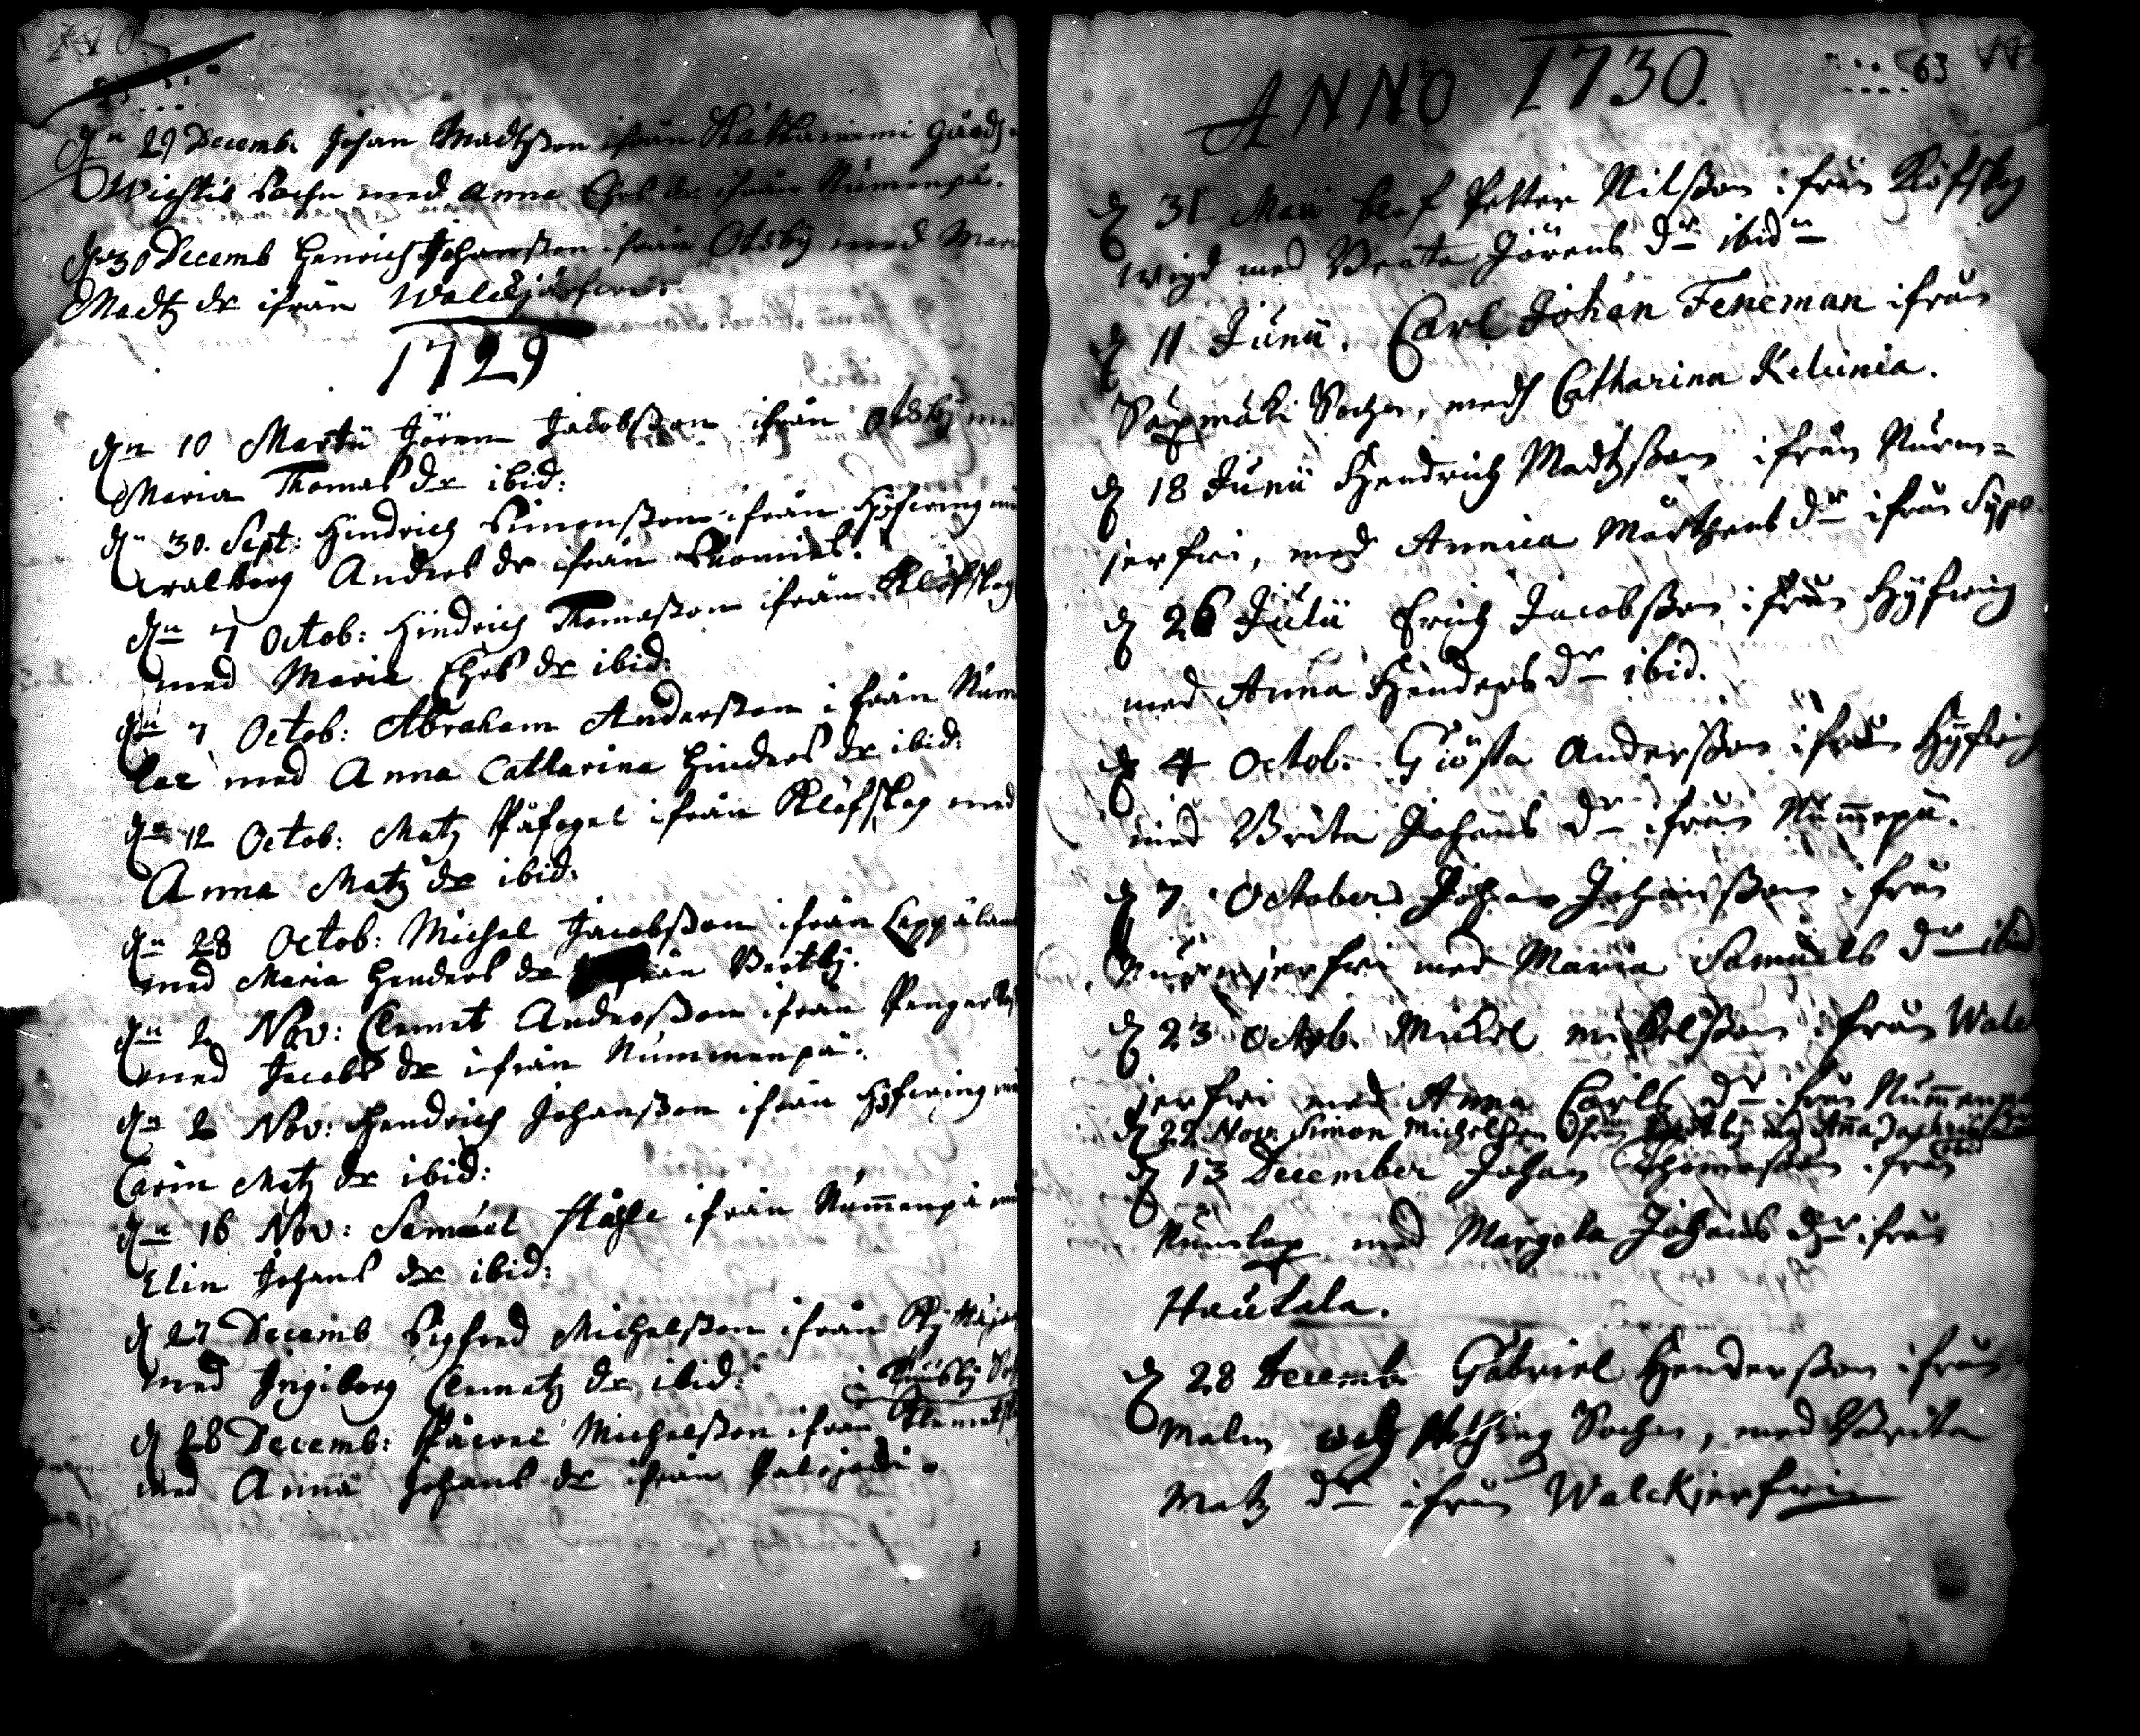 29 Decemb. Johan Madtzson ifrån
Wichtis Sochn med Anna Ers dr ifrån Numenpä.
30 Decemb Henrich Johansson ifrån Otsby med Mari
Madtz dr ifrån Walckjärfwi.
1729
dn 10 Martii Jören Jacobsson ifrån Otsby med
Maria Thomas dr ibid:
dn 30. Sept: Hindrich Simonsson ifrån Hyfwing
Walborg Anders dr ifrån
dn 7 Octob: Hindrich Thomasson ifrån Klöfskog
med Maria Ers dr ibid:
dn 7 Octob: Abraham Andersson ifrån Num
lax med Anna Catharina Hinders dr ibid:
dn 12 Octob: Matz Påfogel ifrån Klöfskog med
Anna Matz dr ibid:
dn 28 Octob: Michel Jacobsson ifrån Leppälam
med Maria Henders dr ifrån Vertby.
dn 2 Nov: Clemet Andersson ifrån Pengerby
med Jacobs dr ifrån Nummenpä.
dn 2 Nov: Hendrich Johansson ifrån Hyfwing
Carin Matz dr ibid:
dn 16 Nov: Samuel Ståhle ifrån Num̄enpä
Elin Johans dr ibid:
d 27 Decemb Sigfred Michelsson ifrån
med Ingiborg Clemetz dr ibid:
d 28 Decemb: Påwel Michelsson ifrån Klemetsk
med Anna Johans dr ifrån Palojocki.
63
ANNO 1730.
d 31 Maii blef Petter Nilsson ifrån Klöfskog
wigd med Beata Jörens dr ibidm
d 11 Junii. Carl Johan Feneman ifrån
Säxmäki Sochn, med Catharina Kelunia.
d 18 Junii Hendrich Madtzsson ifrån Nurm=
jerfwi, med Annica Mårthens dr ifrån Syp
d 26 Julii Erich Jacobsson ifrån Hyfwing
med Anna Henders dr ibid.
d 4 Octob. Giösta Andersson ifrån Hyfwing
med Brita Johans dr ifrån Num̄epä.
d 7 October Johan Johansson ifrån
Nurmjerfwi med Maria Samuels dr ibid
d 23 Octob. Mickel Mickelsson ifrån Walc
jerfwi med Anna Carls dr ifrån Num̄enpä
d 22 Nov. Simon Michelsson ifrån Vertby med An̄a
ibid
d 13 December Johan Thomasson ifrån
Numlax med Margeta Johans dr ifrån
Hautala.
d 28 Decemb. Gabriel Hendersson ifrån
Malm och Sochn, med Brita
Matz dr ifrån Walckjerfwi